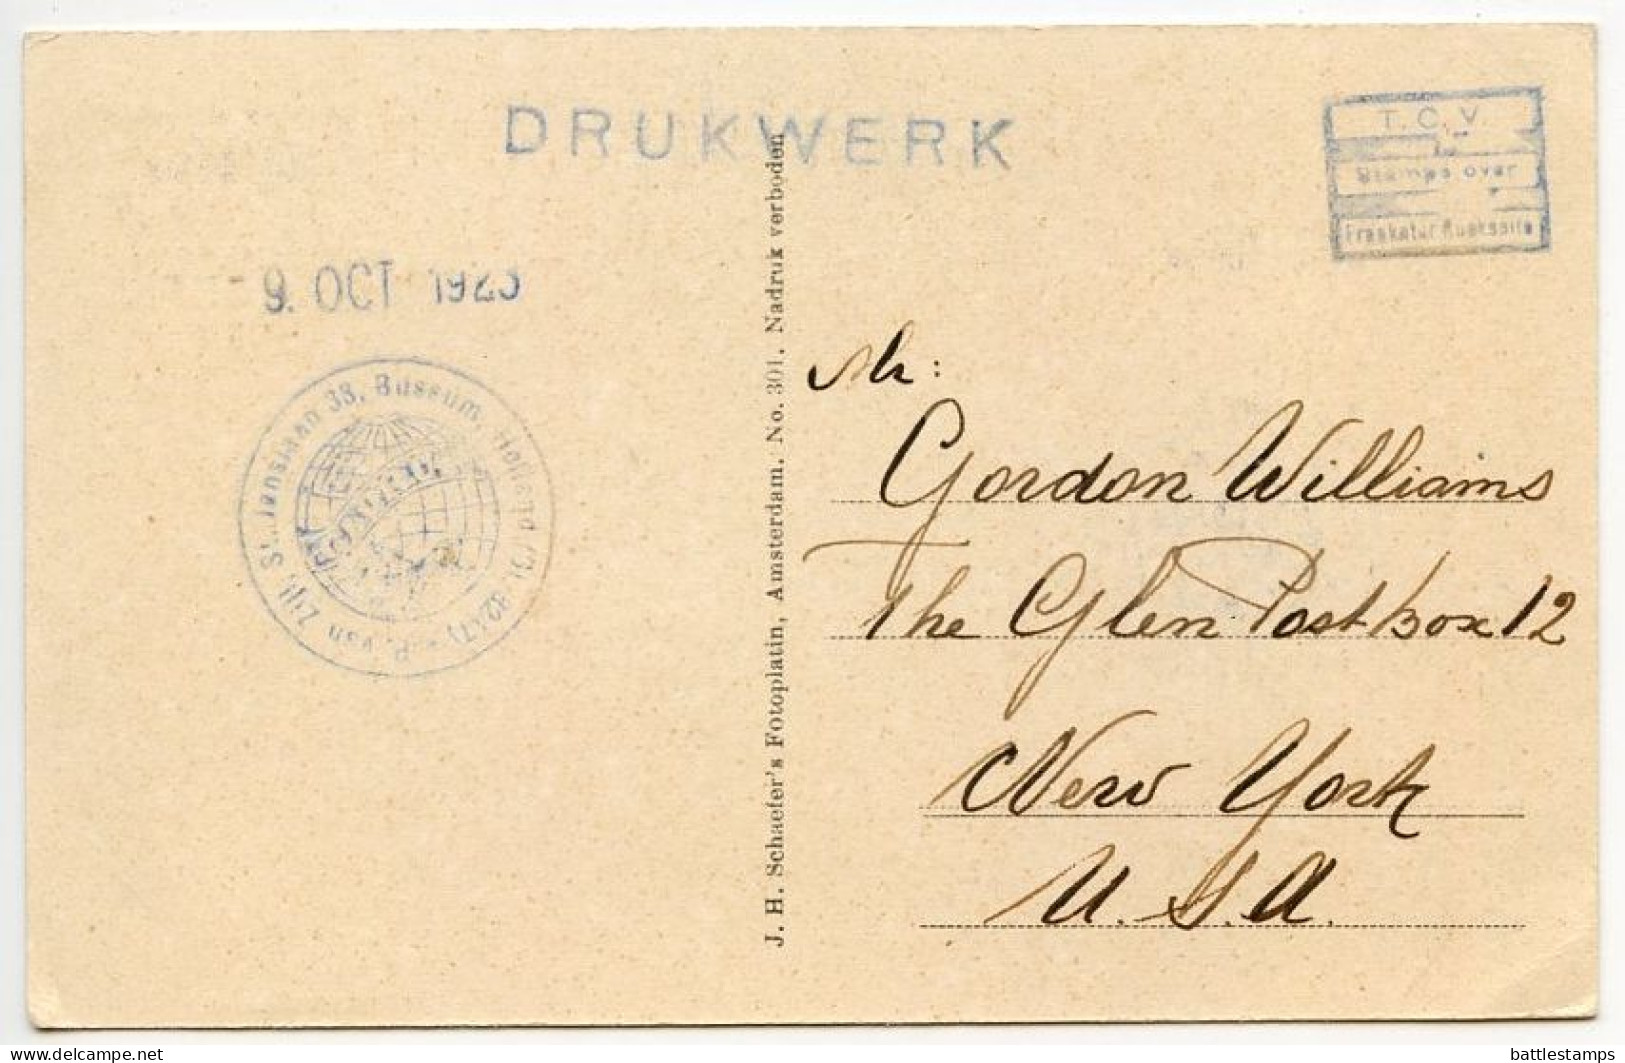 DRUKWERK
T.C.V.
Stamps over
Frankatur Rückseite
9. OCT 1925
P. van Zijl, St. Janslaan 38, Bussum, Holland
J. H. Schaefer's Fotoplatin, Amsterdam, No. 301, Nadruk verboden
Mr:
Gordon Williams
The Glen Postbox 12
New York
U.S.A.
delcampe.net
battlestamps